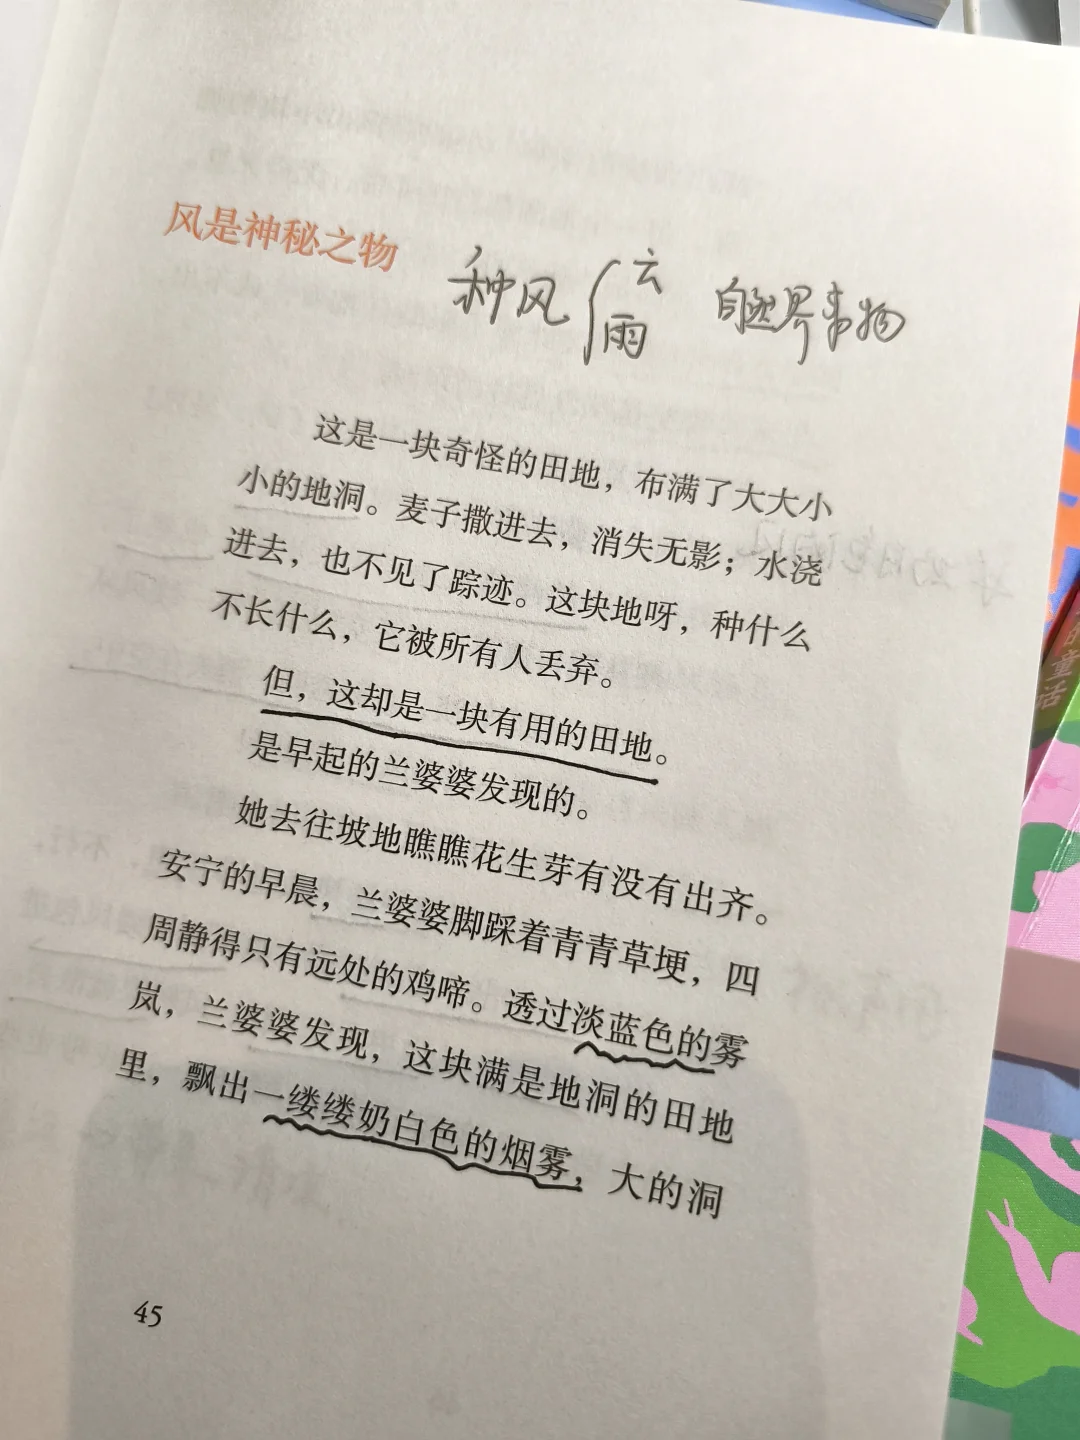 风是神秘之物
种风 云 自然界事物
雨
这是一块奇怪的田地，布满了大大小
小的地洞。麦子撒进去，消失无影；水浇
进去，也不见了踪迹。这块地呀，种什么
不长什么，它被所有人丢弃。
但，这却是一块有用的田地。
是早起的兰婆婆发现的。
她去往坡地瞧瞧花生芽有没有出齐。
安宁的早晨，兰婆婆脚踩着青青草埂，四
周静得只有远处的鸡啼。透过淡蓝色的雾
岚，兰婆婆发现，这块满是地洞的田地
里，飘出一缕缕奶白色的烟雾，大的洞
45
童话